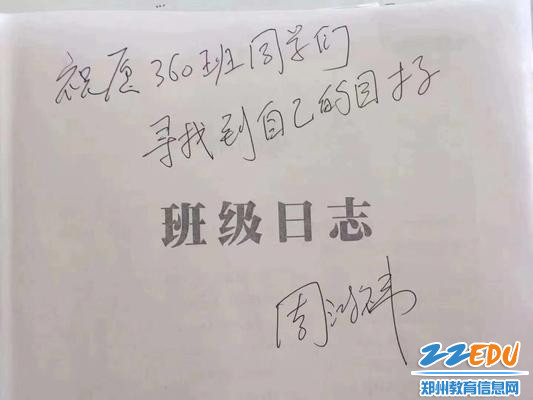 祝愿360班同学们
寻找到自己的目标
班级日志
周鸿祎
ZZEDU
郑州教育信息网